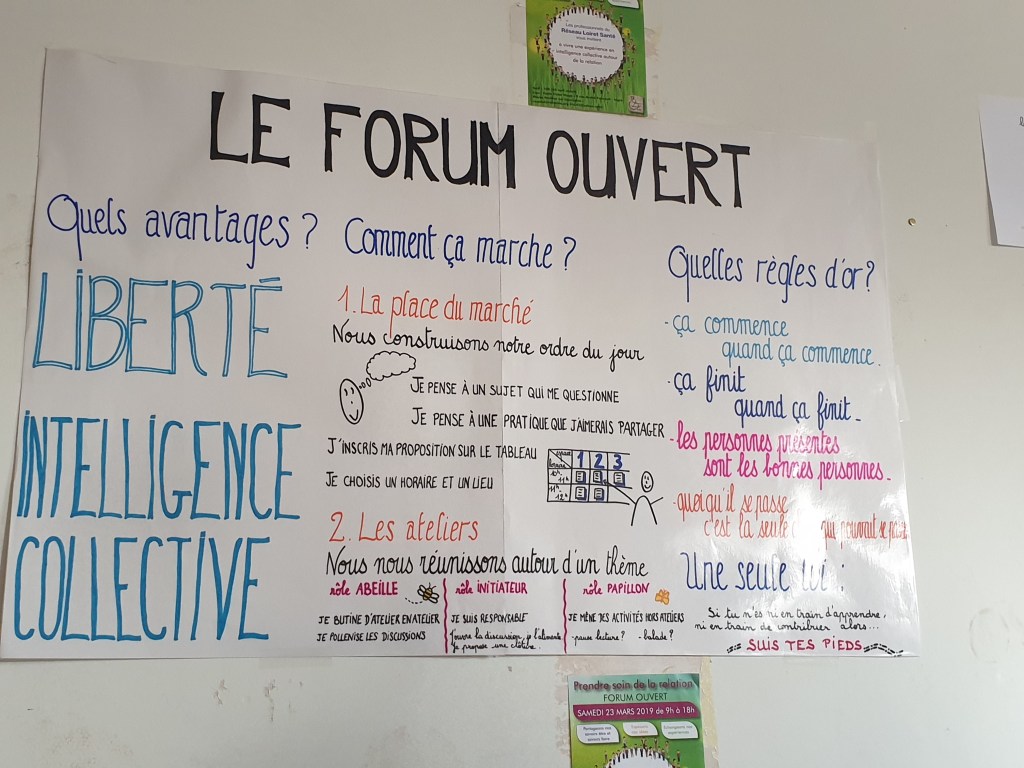 Les professionnels du
Réseau Loiret Santé
vous invitent
à vivre une expérience en
intelligence collective autour
de la relation
LE FORUM OUVERT
Quels avantages ?
LIBERTÉ
INTELLIGENCE
COLLECTIVE
Comment ça marche ?
1. La place du marché
Nous construisons notre ordre du jour
JE PENSE À UN SUJET QUI ME QUESTIONNE
JE PENSE À UNE PRATIQUE QUE J'AIMERAIS PARTAGER
J'INSCRIS MA PROPOSITION SUR LE TABLEAU
JE CHOISIS UN HORAIRE ET UN LIEU
1 2 3
2. Les ateliers
Nous nous réunissons autour d'un thème
rôle ABEILLE
JE BUTINE D'ATELIER EN ATELIER
JE POLLENISE LES DISCUSSIONS
rôle INITIATEUR
JE SUIS RESPONSABLE
J'ouvre la discussion, je l'alimente
Je propose une clôture.
rôle PAPILLON
JE MÈNE DES ACTIVITÉS HORS ATELIERS
-pause lecture? -balade?
Quelles règles d'or?
-ça commence
quand ça commence.
-ça finit
quand ça finit-
-les personnes présentes
sont les bonnes personnes-
-quoi qu'il se passe
c'est la seule qui pourrait se
Une seule loi :
Si tu n'es ni en train d'apprendre,
ni en train de contribuer alors...
SUIS TES PIEDS
Prendre soin de la relation
FORUM OUVERT
SAMEDI 23 MARS 2019 de 9h à 18h